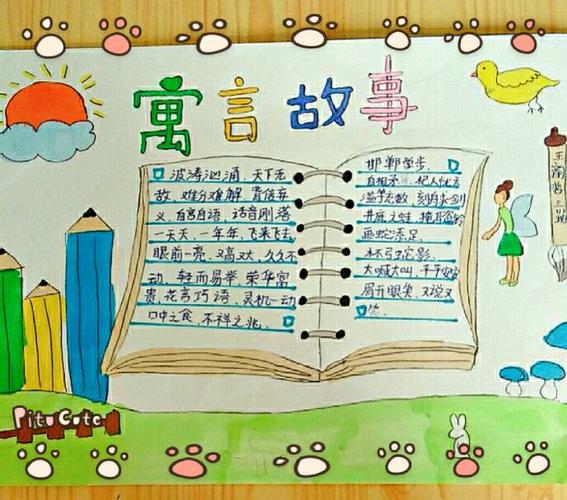 寓言故事
波涛汹涌、天下无
敌、难分难解、背信弃
义、自言自语、话音刚落
一天天、一年年、飞来飞去
眼前一亮、又高又大、久久不
动、轻而易举、荣华富
贵、花言巧语、灵机一动
口中之食、不祥之兆、
邯郸学步、
自相矛盾、杞人忧天
滥竽充数、刻舟求剑
井底之蛙、掩耳盗铃
画蛇添足、
杯弓蛇影、
大喊大叫、平平安安
眉开眼笑、又说又
笑、
Pitu Cute